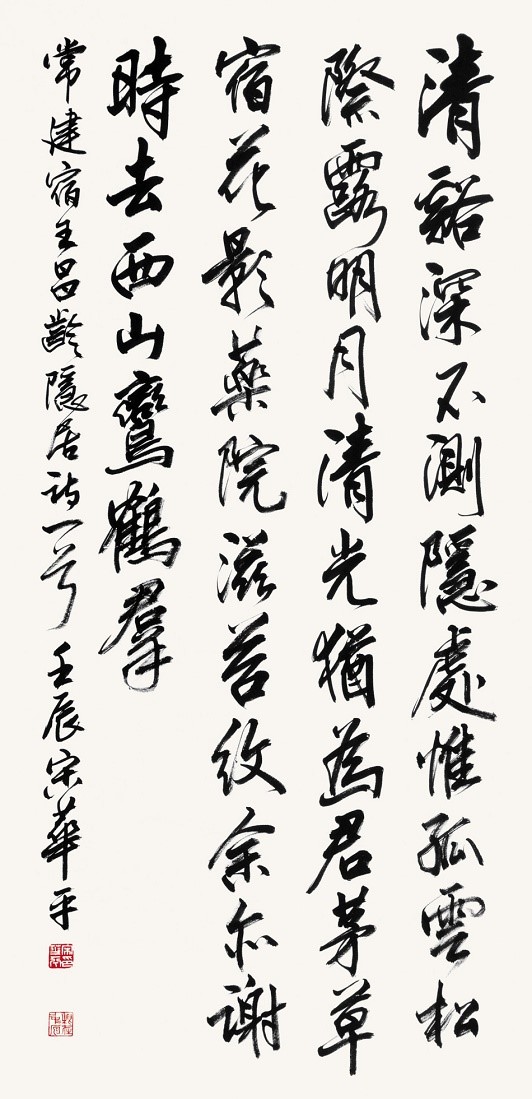 清谿深不測隱處惟孤雲松
際露明月清光猶為君茅草
宿花影藥院滋苔紋余亦謝
時去西山鸞鶴羣
常建宿王昌齡隱居詩一首 壬辰宋華平